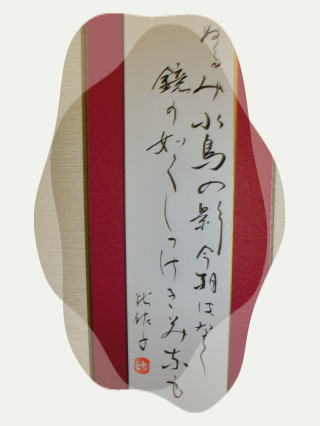 ぬるみ水鳥の影今朝はなく
鏡の如くしつけきみなも
比佐子
比